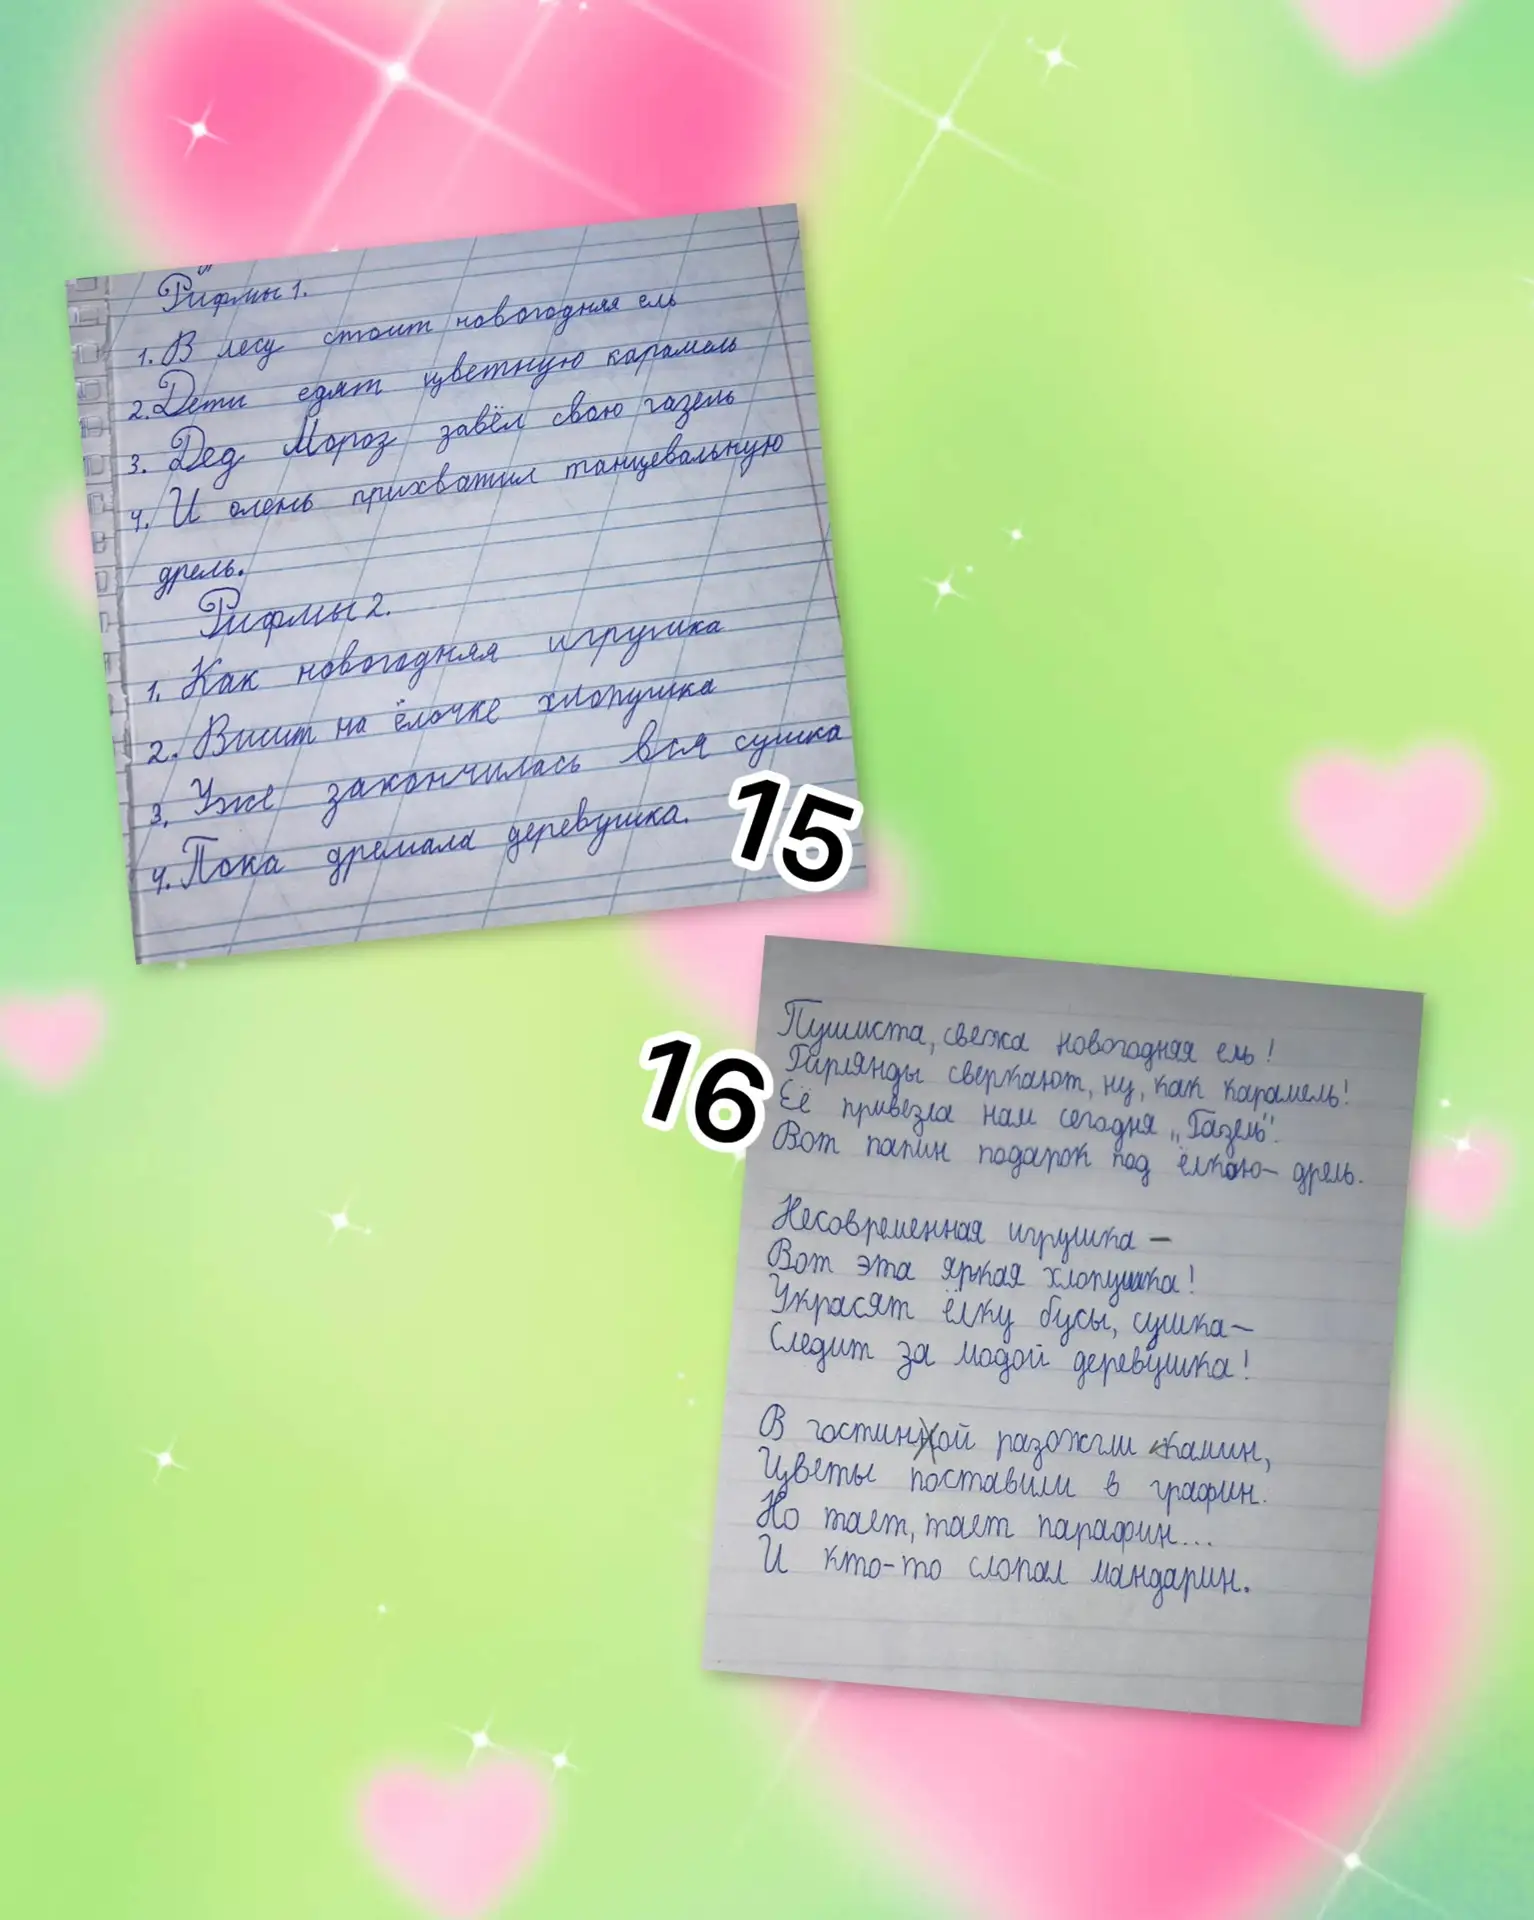 Рифмы 1.
1. В лесу стоит новогодняя ель
2. Дети едят цветную карамель
3. Дед Мороз завёл свою газель
4. И олень прихватил танцевальную
дрель.
Рифмы 2.
1. Как новогодняя игрушка
2. Висит на ёлочке хлопушка
3. Уже закончилась вся сушка
4. Пока дремала деревушка.
15
16
Пушиста, свежа новогодняя ель!
Гирлянды сверкают, ну, как карамель!
Её привезла нам сегодня „Газель".
Вот папин подарок под ёлкою- дрель.
Несовременная игрушка -
Вот эта яркая хлопушка!
Украсят ёлку бусы, сушка-
Следит за модой деревушка!
В гостинной разожгли камин,
Цветы поставили в графин.
Но тает, тает парафин...
И кто-то слопал мандарин.